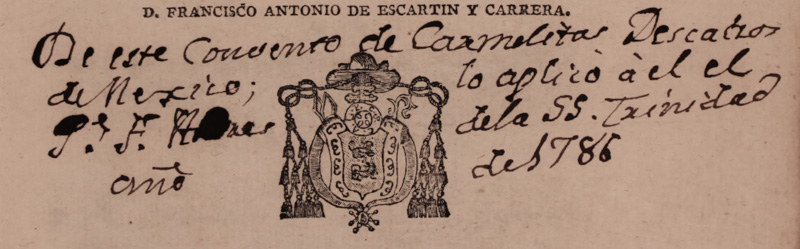 D. FRANCISCO ANTONIO DE ESCARTIN Y CARRERA.
De este Convento de Carmelitas Descalzos
de Mexico; lo aplicò à el el
Pe. F. de la SS. Trinidad
año de 1786